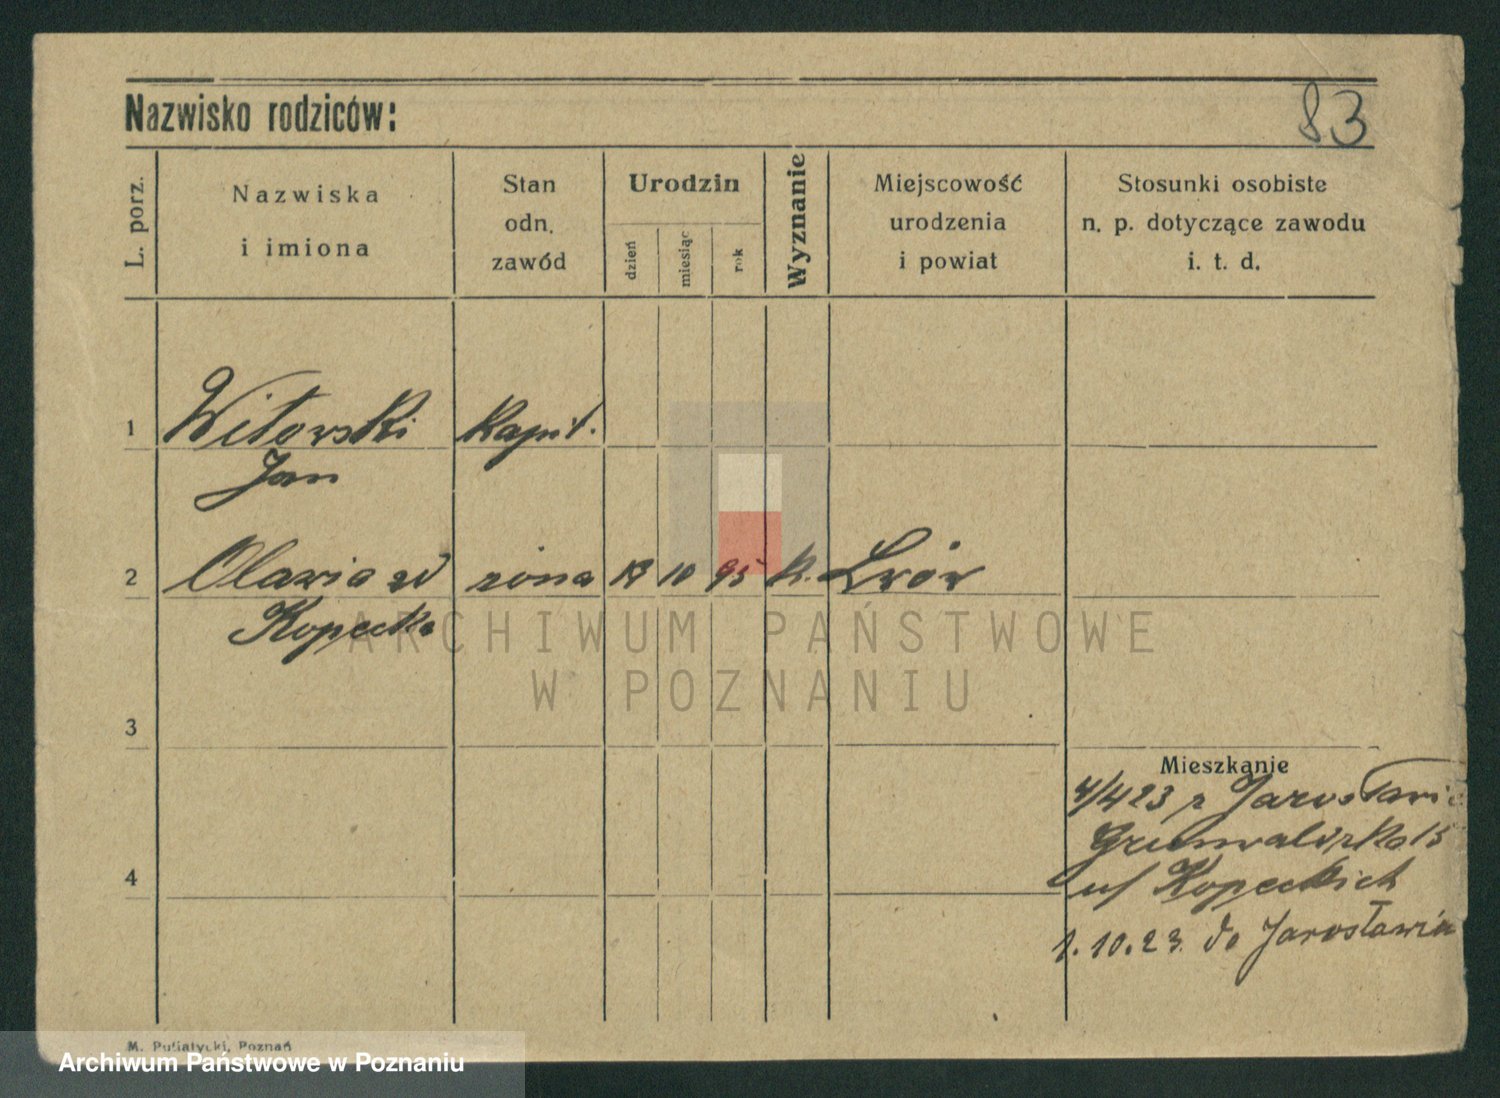 83
Nazwisko rodziców:
L. porz.
Nazwiska
i imiona
Stan
odn.
zawód
Urodzin
dzień
miesiąc
rok
Wyznanie
Miejscowość
urodzenia
i powiat
Stosunki osobiste
n. p. dotyczące zawodu
i. t. d.
1 Witowski kapit.
Jan
2 żona 10 95 k. Lwów
Kopecka
3
4
Mieszkanie
4/4 23 z Jarosławia
Grunwaldzka 15
u/ Kopeckich
1. 10. 23. do Jarosławia
ARCHIWUM PAŃSTWOWE
W POZNANIU
M. Putiatycki, Poznań
Archiwum Państwowe w Poznaniu